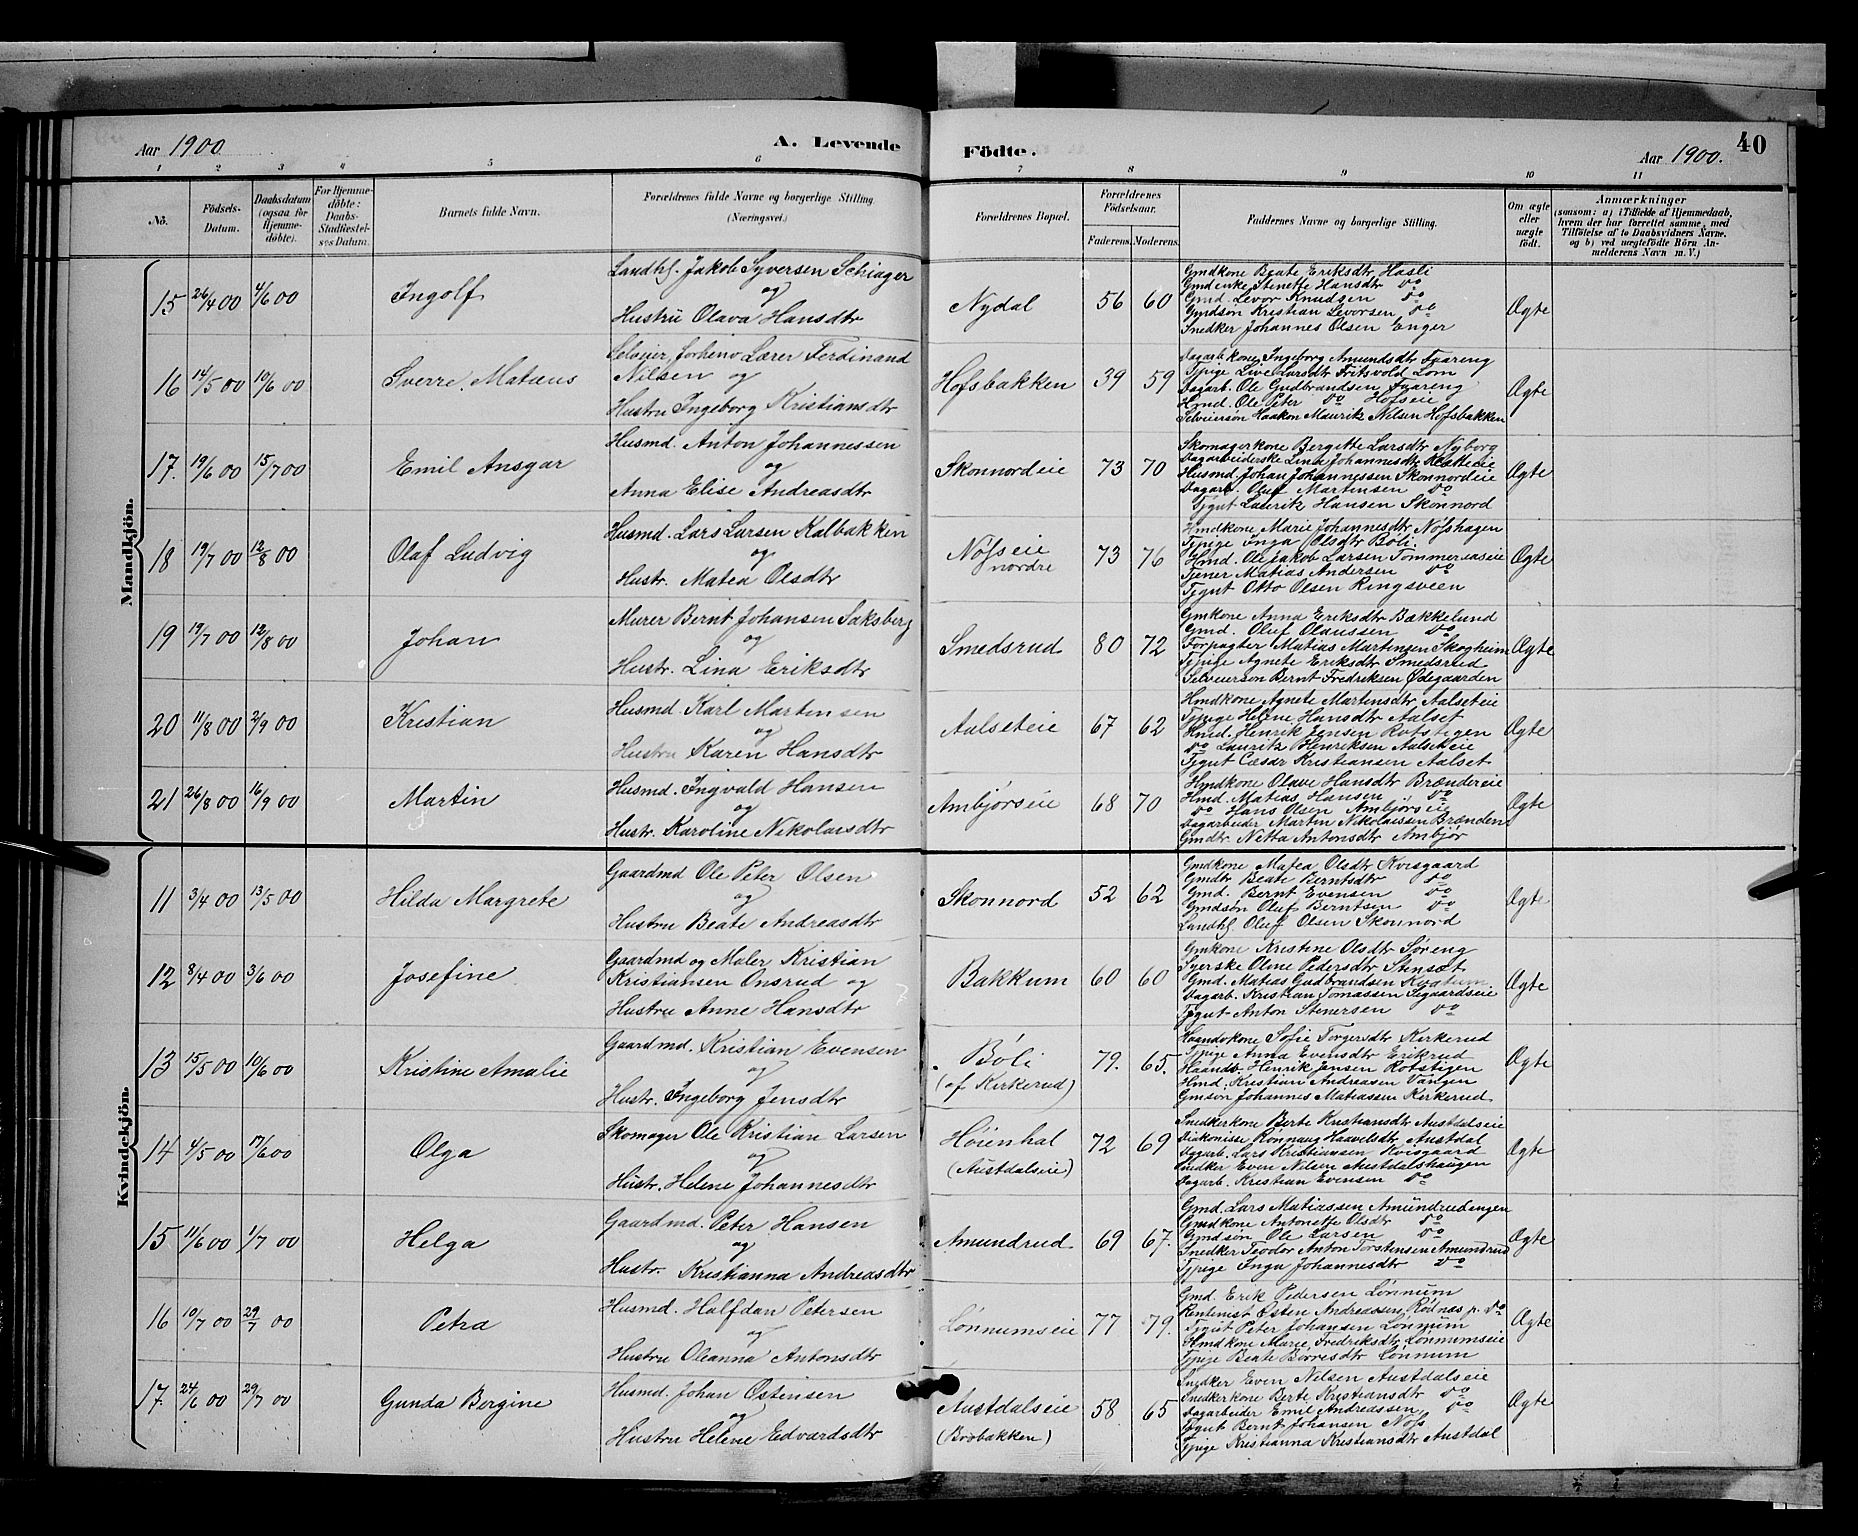 Aar 1900 A. Levende Födte. Aar 1900. 40
1 2 3 4 5 6 7 8 9 10 11
Nö. Födsels-Datum. Daabsdatum (ogsaa for Hjemmedöbte). For Hjemmedöbte: Daabs-Stadfæstelses Datum. Barnets fulde Navn. Forældrenes fulde Navne og borgerlige Stilling. (Næringsvei.) Forældrenes Bopæl. Forældrenes Födselsaar. Faderens. Moderens. Faddernes Navne og borgerlige Stilling. Om ægte eller uægte födt. Anmærkninger (saasom: a) i Tilfælde af Hjemmedaab, hvem der har forrettet samme, med Tilföielse af to Daabsvidners Navne, og b) ved uægtefödte Börn Anmelderens Navn m. V.)
Mandkjön.
15 26/4 00 4/6 00 Ingolf
Landhl. Jakob Syversen Schiager
og
Hustru Olava Hansdtr
Nydal 56 60
Gmdkone Beate Eriksdtr Hasli
Gmdenke Stenette Hansdtr do
Gmd. Levor Knudsen do
Gmdsøn Kristian Levorsen do
Snedker Johannes Olsen Enger
Ægte
16 14/5 00 10/6 00 Sverre Matæus
Selveier, Lærer Ferdinand
Nilsen og
Hustru Ingeborg Kristiansdtr
Hofsbakken 39 59
Dagarb.kone Ingeborg Amundsdtr Faareng
Tjpige Live Larsdtr Fritsvold Lom
Dagarb. Ole Gudbrandsen Faareng
Hmd. Ole Peter do Hofseie
Selveiersøn Haakon Mauritz Nilsen Hofsbakken
Ægte
17. 19/6 00 15/7 00 Emil Ansgar
Husmd. Anton Johannessen
og
Anna Elise Andreasdtr
Skonnordeie 73 70
Skomagerkone Bergitte Larsdtr Nyborg
Dagarbeiderske Lina Johannesdtr Klætteie
Husmd. Johan Johannessen Skonnordeie
Dagarb. Oluf Martinsen do
Tjgut Lauritz Hansen Skonnord
Ægte
18 19/7 00 12/8 00 Olaf Ludvig
Husmd. Lars Larsen Kalbakken
og
Hustr. Matea Olsdtr
Nøfseie nordre 73 76
Hmdkone Marie Johannesdtr Nøfshagen
Tjpige Inga Olsdtr Bøli
Hmd. Ole Jakob Larsen Tommeraaseie
Tjener Matias Andersen do
Tjgut Otto Olsen Ringsveen
Ægte
19 19/7 00 12/8 00 Johan
Murer Bernt Johansen Saksberg
og
Hustr. Lina Eriksdtr
Smedsrud 80 72
Gmkone Anna Eriksdtr Bækkelund
Gmd. Oluf Olaussen do
Forpagter Matias Martinsen Skogheim
Tjpige Agnete Eriksdtr Smedsrud
Selveiersøn Bernt Fredriksen Ødegaarden
Ægte
20 11/8 00 2/9 00 Kristian
Husmd. Karl Martinsen
og
Hustru Karen Hansdtr
Aalseteie 67 62
Hmdkone Agnete Martinsdtr Aalseteie
Tjpige Helene Hansdtr Aalset
Hmd. Henrik Jensen Rotstigen
do Lauritz Henriksen Aalseteie
Tjgut Cæsar Kristiansen Aalset
Ægte
21 26/8 00 16/9 00 Martin
Husmd. Ingvald Hansen
og
Hustr. Karoline Nikolaisdtr
Ambjørseie 68 70
Hmdkone Olave Hansdtr Brændereie
Hmd. Matias Hansen do
do Hans Olsen Ambjörseie
Dagarbeider Martin Nikolaissen Brænden
Gmdtr. Netta Antonsdtr Ambjör
Ægte
Kvindekjön.
11 3/4 00 13/5 00 Hilda Margrete
Gaardmd Ole Peter Olsen
og
Hustru Beate Andreasdtr
Skonnord 52 62
Gmdkone Matea Olsdtr Kvisgaard
Gmdtr Beate Berntsdtr do
Gmd. Bernt Evensen do
Gmdsøn Oluf Berntsen do
Landhl Oluf Olsen Skonnord
Ægte
12 8/4 00 3/6 00 Josefine
Gaardmd og Maler Kristian
Kristiansen Onsrud og
Hustru Anne Hansdtr
Bakkum 60 60
Gmkone Kristine Olsdtr Søreng
Syerske Oline Pedersdtr Stensæt
Gmd. Matias Gudbrandsen
Dagarb. Kristian Tomassen Sigaardseie
Tjgut Anton Stenersen do
Ægte
13 15/5 00 10/6 00 Kristine Amalie
Gaardmd. Kristian Evensen
og
Hustr. Ingeborg Jensdtr
Bøli (af Kirkerud) 79. 65.
Haandv.kone Sofie Torgersdtr Kirkerud
Tjpige Anna Evensdtr Erikrud
Haandv. Henrik Jensen Rotstigen
Hmd. Kristian Andreasen Vangen
Gmsøn Johannes Matiassen Kirkerud
Ægte
14 4/5 00 17/6 00 Olga
Skomager Ole Kristian Larsen
og
Hustr. Helene Johannesdtr
Høienhal (Austdalseie) 72 69
Snedkerkone Berte Kristiansdtr Austdalseie
Diakonisse Rønnaug Haavelsdtr Austdal
Dagarb. Lars Kristiansen Kvisgaard
Snedker Even Nilsen Austdalshaugen
Dagarb. Kristian Evensen do
Ægte
15 11/6 00 1/7 00 Helga
Gaardmd. Peter Hansen
og
Hustr. Kristianna Andreasdtr
Amundrud 69 67.
Gmd. Lars Matiassen Amundrudengen
Gmdkone Antonette Olsdtr do
Gmdsøn Ole Larsen do
Snedker Teodor Anton Torstensen Amundrud
Tjpige Inga Johannesdtr do
Ægte
16 10/7 00 29/7 00 Petra
Husmd. Halfdan Petersen
og
Hustru Oleanna Antonsdtr
Lönnumseie 77 79.
Gmd. Erik Pedersen Lønnum
Rentenist Østen Andreassen Rødnæs p. do
Tjgut Peter Johansen Lønnum
Hmdkone Marie Fredriksdtr Lønnumseie
Tjpige Beate Børresdtr Lønnum
Ægte
17. 24/6 00 29/7 00 Gunda Bergine
Husmd. Johan Østensen
og
Hustru Helene Edvardsdtr
Austdalseie (Brobakken) 58 65
Snedker Even Nilsen Austdalseie
Snedkerkone Berte Kristiansdtr do
Dagarbeider Emil Andreassen do
Tjgut Bernt Johansen Nøfs
Tjpige Kristianna Kristiansdtr Austdal
Ægte